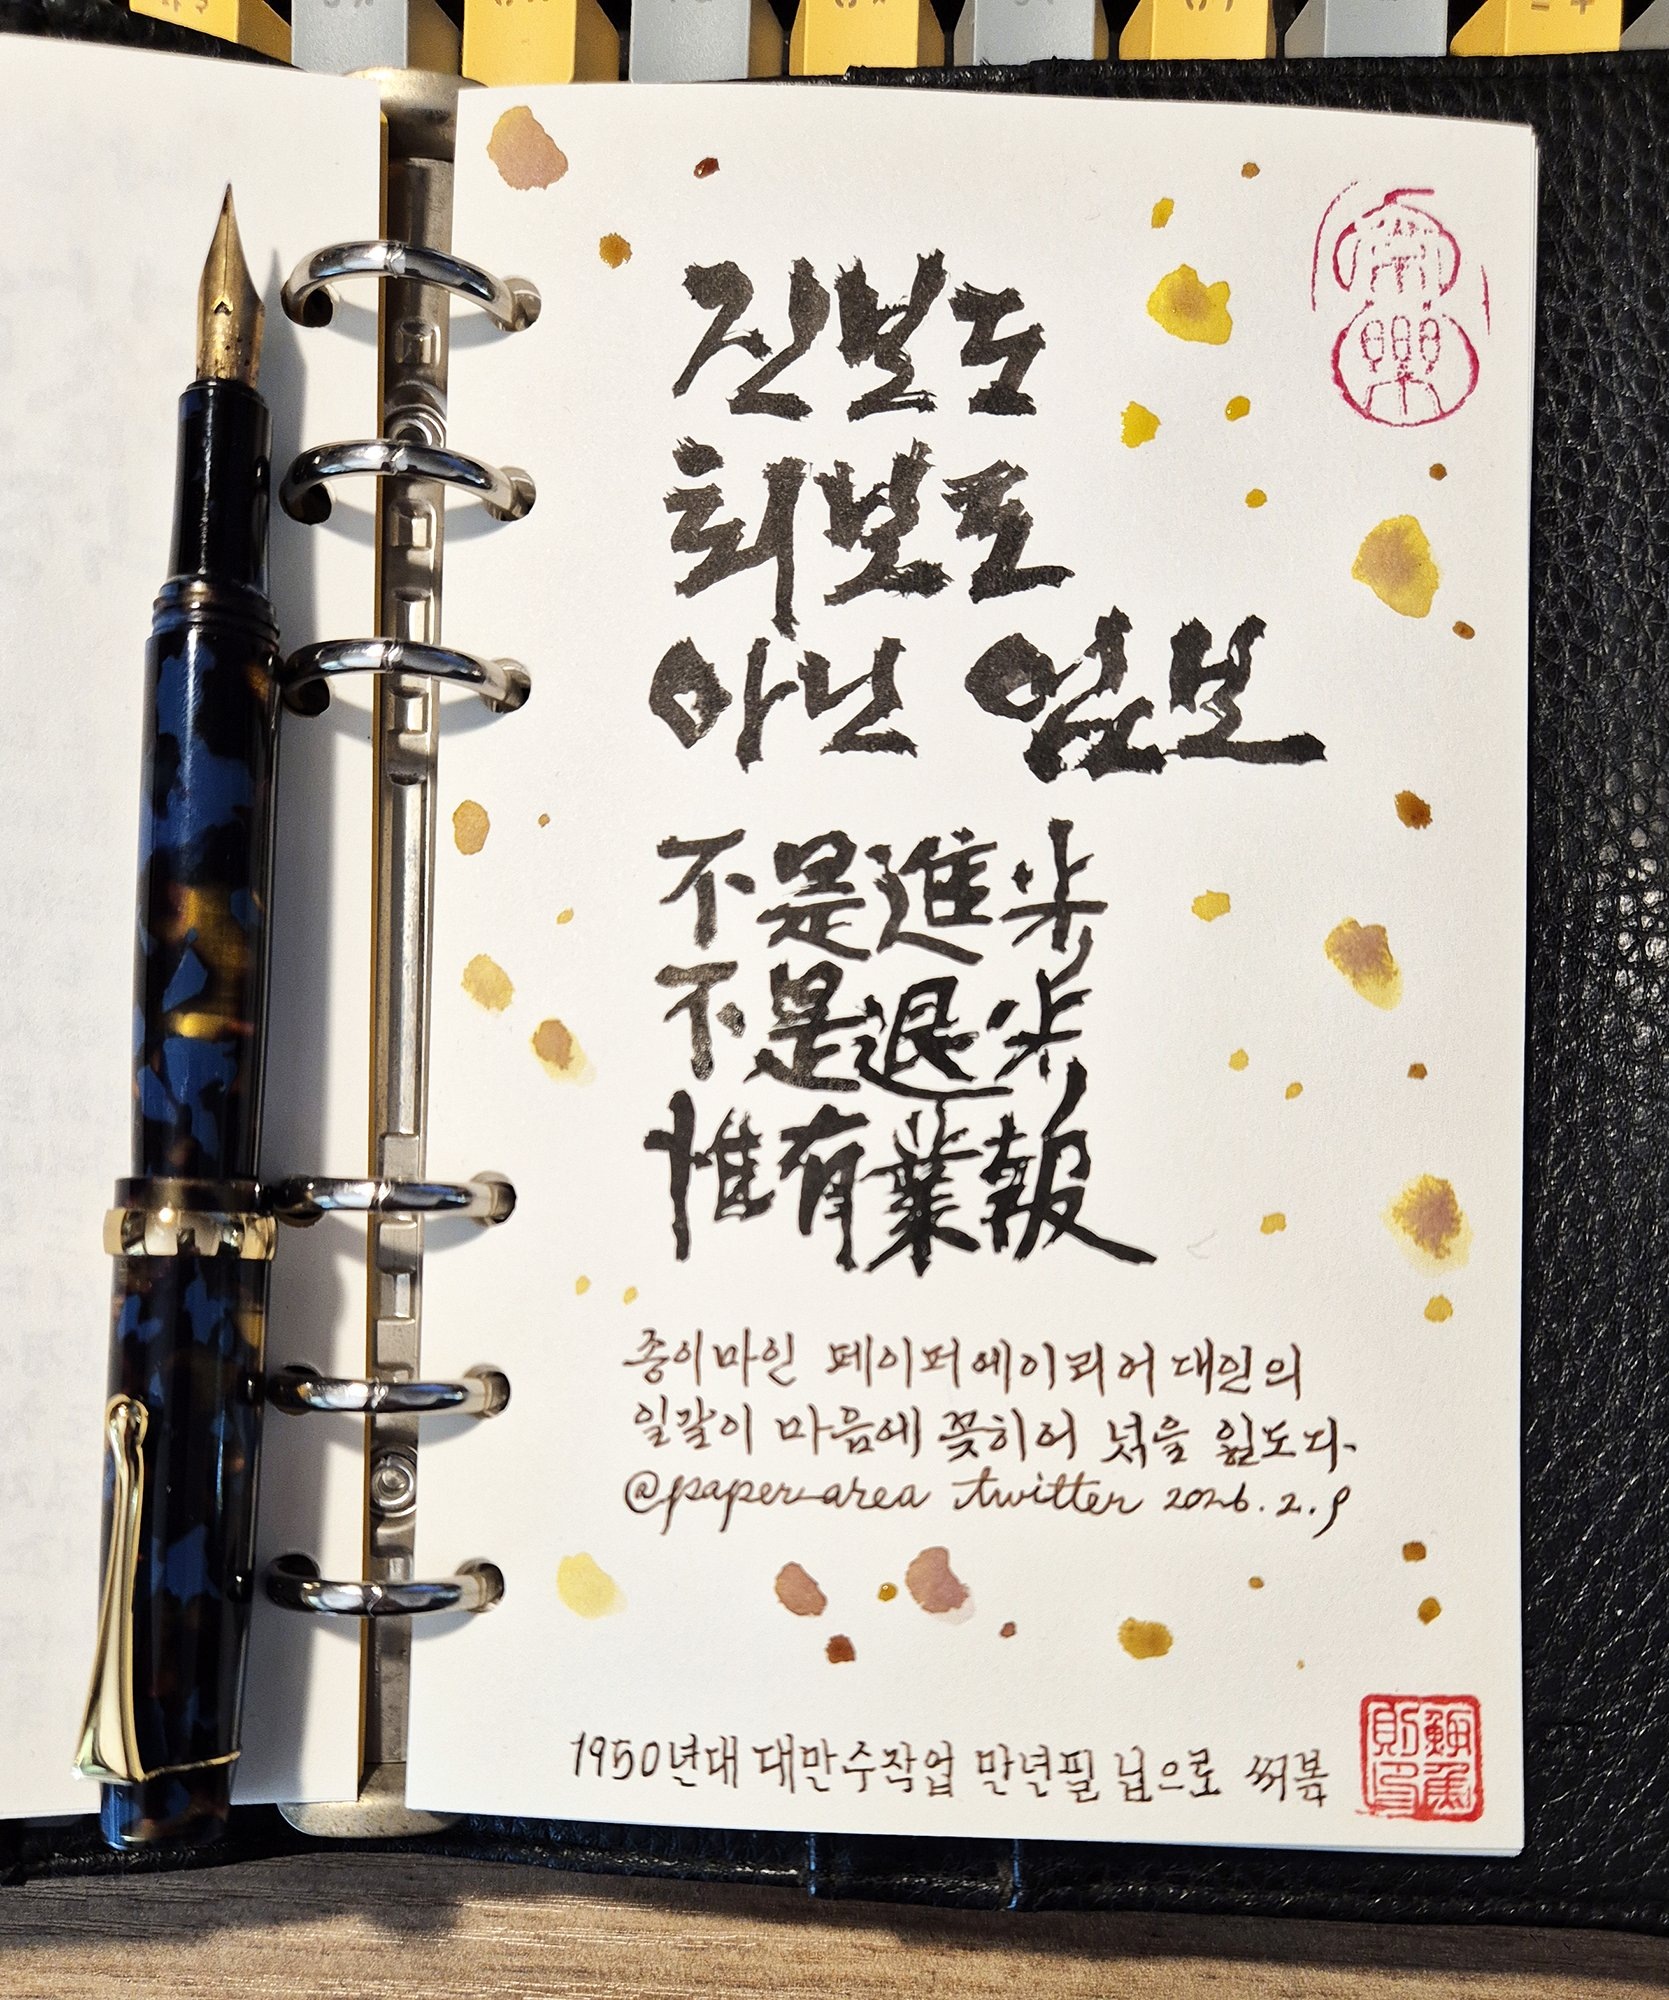 常樂
진보도
퇴보도
아닌 업보
不是進步
不是退步
惟有業報
종이마인 페이퍼에이뤼어대인의
일갈이 마음에 꽂히어 넋을 잃도다.
@paper_area twitter 2026.2.9
1950년대 대만수작업 만년필 닙으로 써봄